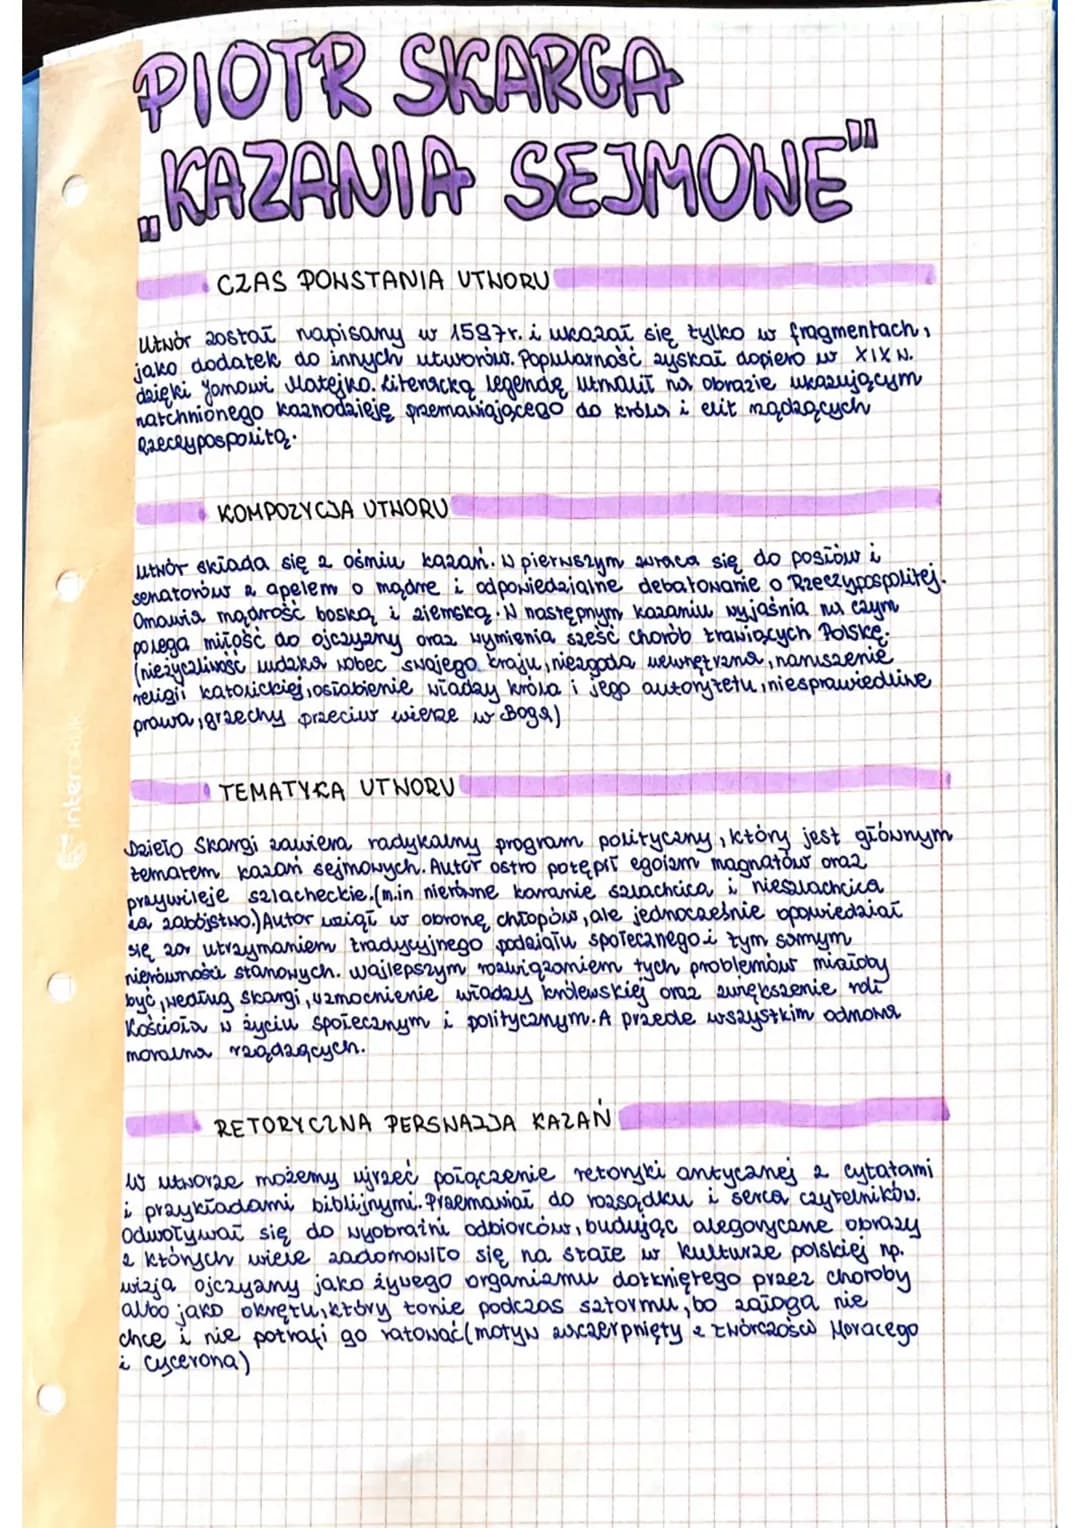 PIOTR SKARGA
„KAZANIA SEJMOWE"
CZAS POWSTANIA UTWORU
Utwór został napisany w 1597r. i ukazał się tylko w fragmentach,
jako dodatek do innych utworów. Popularność zyskał dopiero w XIX w.
dzięki Janowi Matejko. Literacką legendę utrwalił na obrazie ukazującym
natchnionego kaznodzieję przemawiającego do króla i elit rządzących
Rzeczypospolitą.
KOMPOZYCJA UTWORU
Utwór składa się z ośmiu kazań. W pierwszym zwraca się do posłów i
senatorów z apelem o mądre i odpowiedzialne debatowanie o Rzeczypospolitej.
Omawia mądrość boską i ziemską. W następnym kazaniu wyjaśnia na czym
polega miłość do ojczyzny oraz wymienia sześć chorób trawiących Polskę.
(nieżyczliwość ludzka wobec swojego kraju, niezgoda wewnętrzna, naruszenie
religii katolickiej, osłabienie władzy króla i jego autorytetu, niesprawiedliwe
prawa, grzechy przeciw wierze w Boga)
interdruk
TEMATYKA UTWORU
Dzieło Skargi zawiera radykalny program polityczny, który jest głównym
tematem kazań sejmowych. Autor ostro potępił egoizm magnatów oraz
przywileje szlacheckie. (m.in nierówne karanie szlachcica i nieszlachcica
za zabójstwo.) Autor wziął w obronę chłopów, ale jednocześnie opowiedział
się za utrzymaniem tradycyjnego podziału społecznego i tym samym
nierówności stanowych. Najlepszym rozwiązaniem tych problemów miałoby
być, według Skargi, wzmocnienie władzy królewskiej oraz zwiększenie roli
Kościoła w życiu społecznym i politycznym. A przede wszystkim odnowa
moralna rządzących.
RETORYCZNA PERSWAZJA KAZAŃ
W utworze możemy ujrzeć połączenie retoryki antycznej z cytatami
i przykładami biblijnymi. Przemawiał do rozsądku i serca czytelników.
Odwoływał się do wyobraźni odbiorców, budując alegoryczne obrazy
z których wiele zadomowiło się na stałe w kulturze polskiej np.
wizja ojczyzny jako żywego organizmu dotkniętego przez choroby
albo jako okrętu, który tonie podczas sztormu, bo załoga nie
chce i nie potrafi go ratować (motyw zaczerpnięty z twórczości Horacego
i Cycerona)